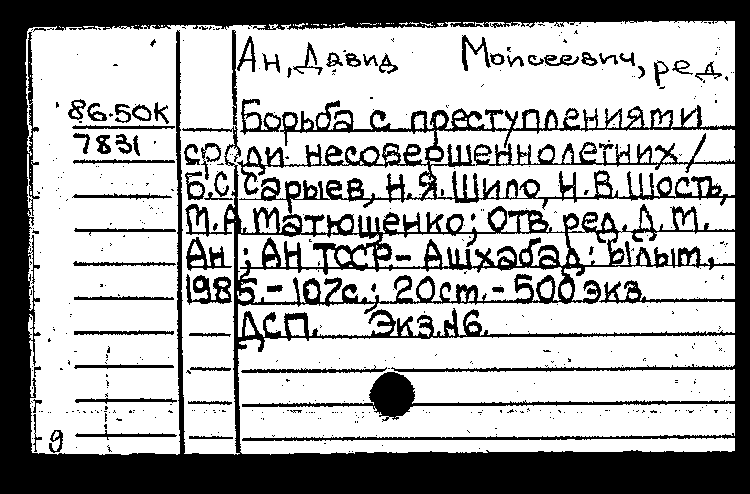 Ан, Давид Моисеевич, ред.
86-50К
7831
Борьба с преступлениями
среди несовершеннолетних /
Б.С. Сарыев, Н.Я. Шило, Н.В. Шость,
М.А. Матющенко; Отв. ред. Д.М.
Ан ; АН ТССР.- Ашхабад: Ылым,
1985.- 107с.; 20см.- 500 экз.
ДСП. Экз.№6.
9